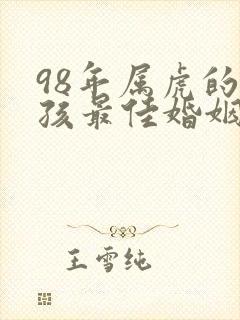 98年属虎的
孩最佳婚姻
王雪纯